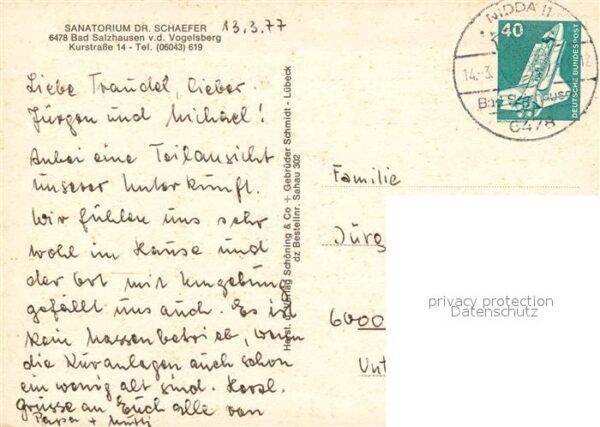 SANATORIUM DR. SCHAEFER
6478 Bad Salzhausen v.d. Vogelsberg
Kurstraße 14 - Tel. (06043) 619
13.3.77
Liebe Traudel, lieber
Jürgen und Michael!
Anbei eine Teilansicht
unserer Unterkunft.
Wir fühlen uns sehr
wohl im Hause und
der Ort mit Umgebung
gefällt uns auch. Es ist
kein Massenbetrieb, wenn
die Kuranlagen auch schon
ein wenig alt sind. Herzl.
Grüsse an Euch alle von
+ Mutti
Verlag Schöning & Co + Gebrüder Schmidt - Lübeck
dz Bestellnr. Sahau 302
NIDDA 11
14.-3.
Bad Salzhausen
6478
40
DEUTSCHE BUNDESPOST
Familie
Jürg
6000
Unt
privacy protection
Datenschutz